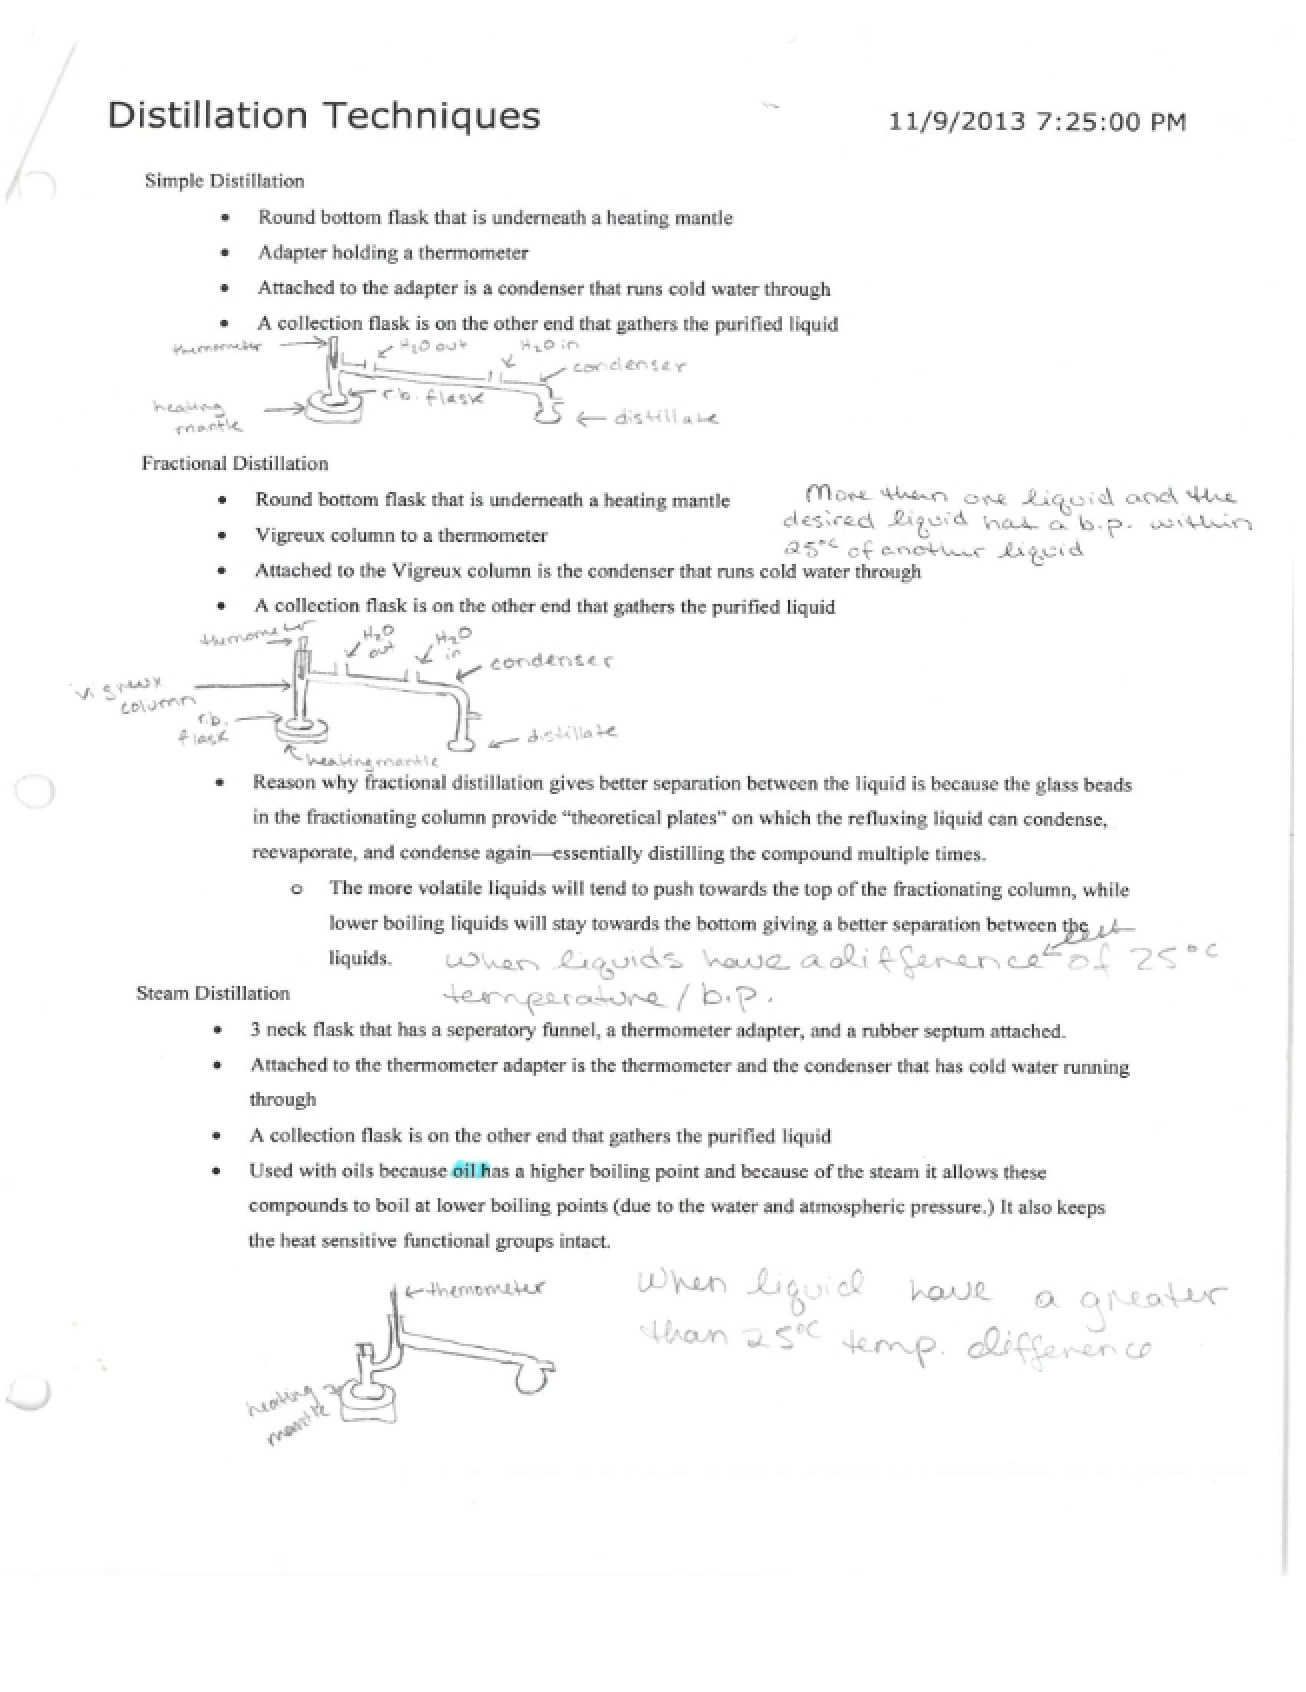 Distillation Techniques 11/9/2013 7:25:00 PM
Simple Distillation
• Round bottom flask that is underneath a heating mantle
• Adapter holding a thermometer
• Attached to the adapter is a condenser that runs cold water through
• A collection flask is on the other end that gathers the purified liquid
thermometer H2O out H2O in
condenser
r.b. flask
heating
mantle
distillate
Fractional Distillation
• Round bottom flask that is underneath a heating mantle
More than one liquid and the
desired liquid has a b.p. within
25°C of another liquid
• Vigreux column to a thermometer
• Attached to the Vigreux column is the condenser that runs cold water through
• A collection flask is on the other end that gathers the purified liquid
thermometer
H2O
out
H2O
in
condenser
vigreux
column
r.b.
flask
distillate
heating mantle
• Reason why fractional distillation gives better separation between the liquid is because the glass beads
in the fractionating column provide “theoretical plates” on which the refluxing liquid can condense,
reevaporate, and condense again—essentially distilling the compound multiple times.
o The more volatile liquids will tend to push towards the top of the fractionating column, while
lower boiling liquids will stay towards the bottom giving a better separation between the
liquids. when liquids have a difference of 25°C
temperature / b.p.
Steam Distillation
• 3 neck flask that has a seperatory funnel, a thermometer adapter, and a rubber septum attached.
• Attached to the thermometer adapter is the thermometer and the condenser that has cold water running
through
• A collection flask is on the other end that gathers the purified liquid
• Used with oils because oil has a higher boiling point and because of the steam it allows these
compounds to boil at lower boiling points (due to the water and atmospheric pressure.) It also keeps
the heat sensitive functional groups intact.
thermometer
when liquid have a greater
than 25°C temp. difference
heating
mantle